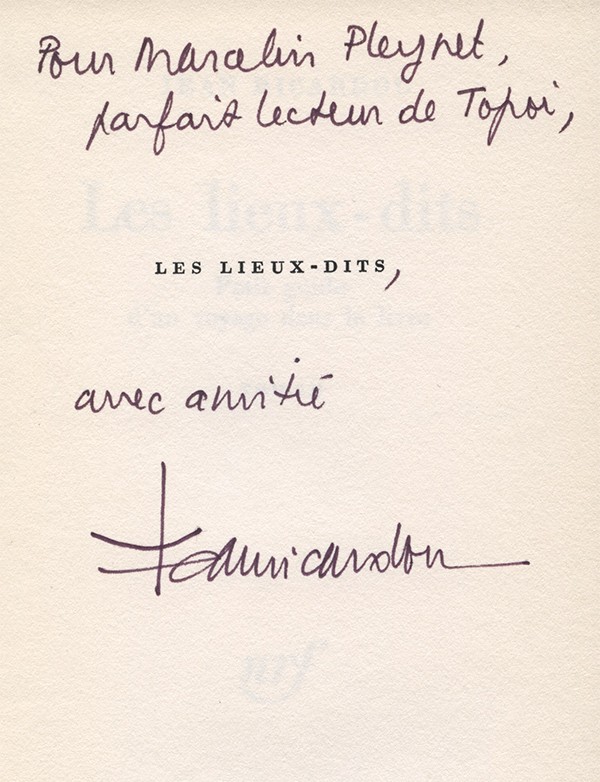 Pour Marcelin Pleynet,
JEAN RICARDOU
parfait lecteur de Topoi,
Les lieux-dits
LES LIEUX-DITS,
Petit guide
d'un voyage dans le livre
avec amitié
Jeanricardou
nrf